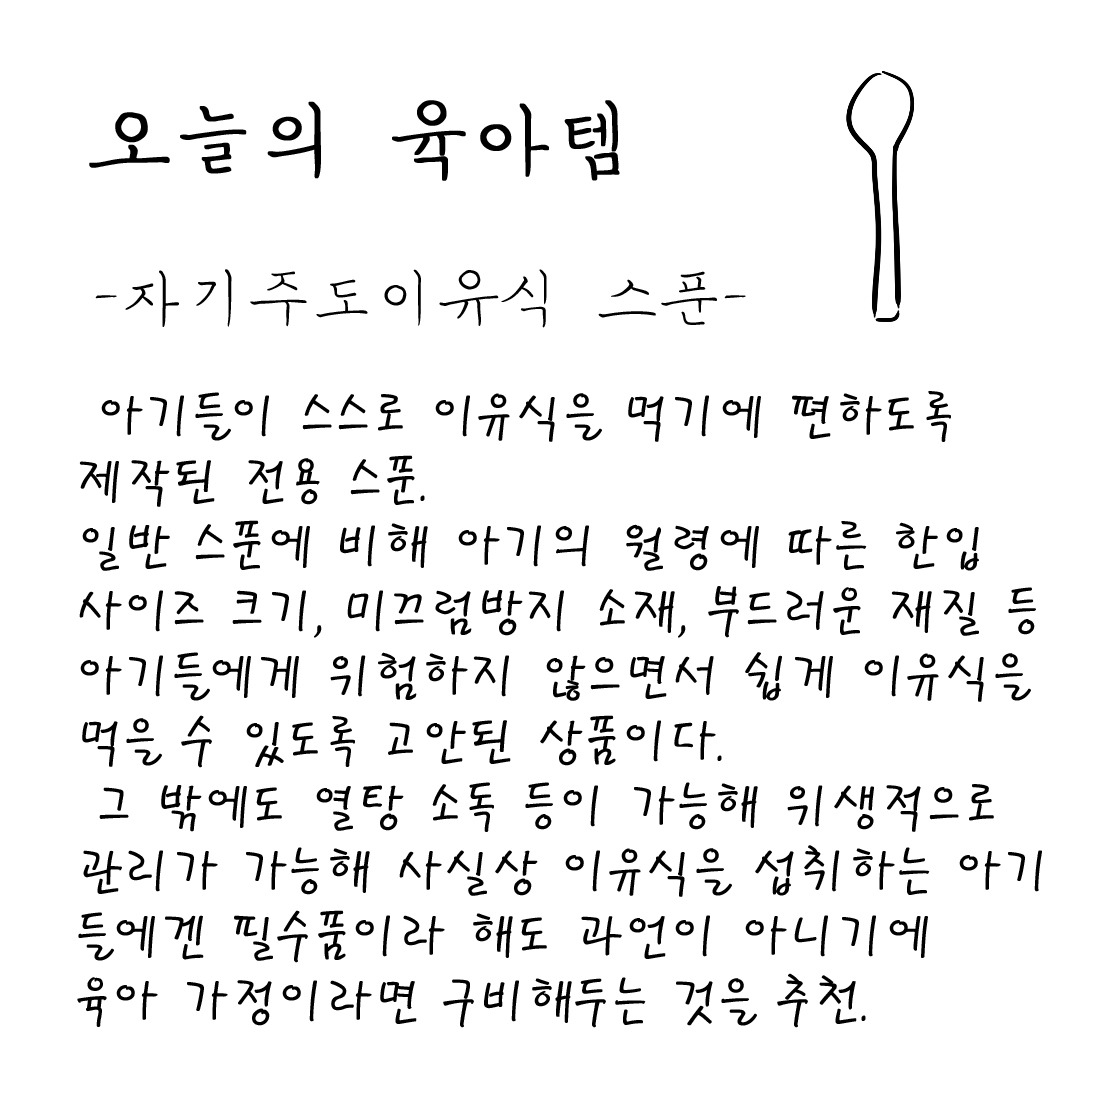 오늘의 육아템
-자기주도이유식 스푼-
아기들이 스스로 이유식을 먹기에 편하도록
제작된 전용 스푼.
일반 스푼에 비해 아기의 월령에 따른 한입
사이즈 크기, 미끄럼방지 소재, 부드러운 재질 등
아기들에게 위험하지 않으면서 쉽게 이유식을
먹을 수 있도록 고안된 상품이다.
그 밖에도 열탕 소독 등이 가능해 위생적으로
관리가 가능해 사실상 이유식을 섭취하는 아기
들에겐 필수품이라 해도 과언이 아니기에
육아 가정이라면 구비해두는 것을 추천.